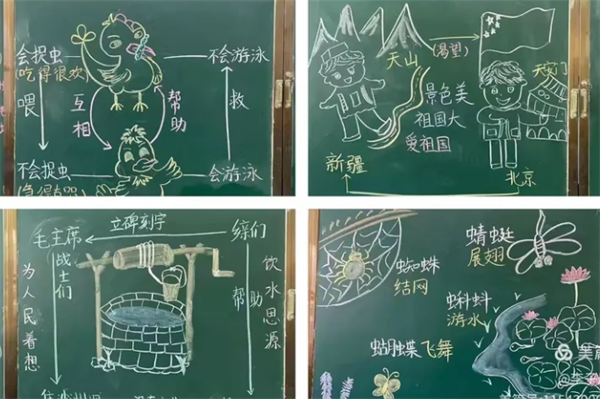 会捉虫
(吃得很欢)
不会游泳
喂
互相
帮助
救
不会捉虫
会游泳
天山
(渴望)
景色美
祖国大
爱祖国
天安门
新疆
北京
立碑刻字
毛主席
战士们
乡亲们
为人民着想
帮助
饮水思源
蜻蜓
展翅
蜘蛛
结网
蝌蚪
游水
蝴蝶飞舞